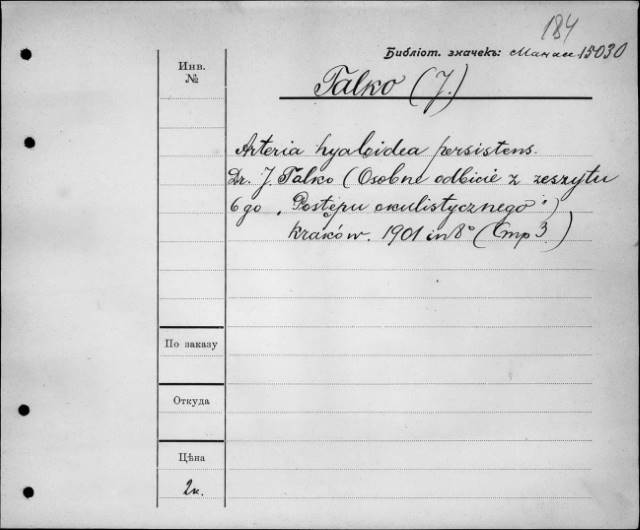 184
Библіот. значекъ: Манасс 15030
Инв.
№
Talko (J.)
Arteria hyaloidea persistens.
Dr. J. Talko (Osobne odbicie z zeszytu
6go „Postępu okulistycznego")
Kraków. 1901 in 8° (Стр 3.)
По заказу
Откуда
Цѣна
2к.